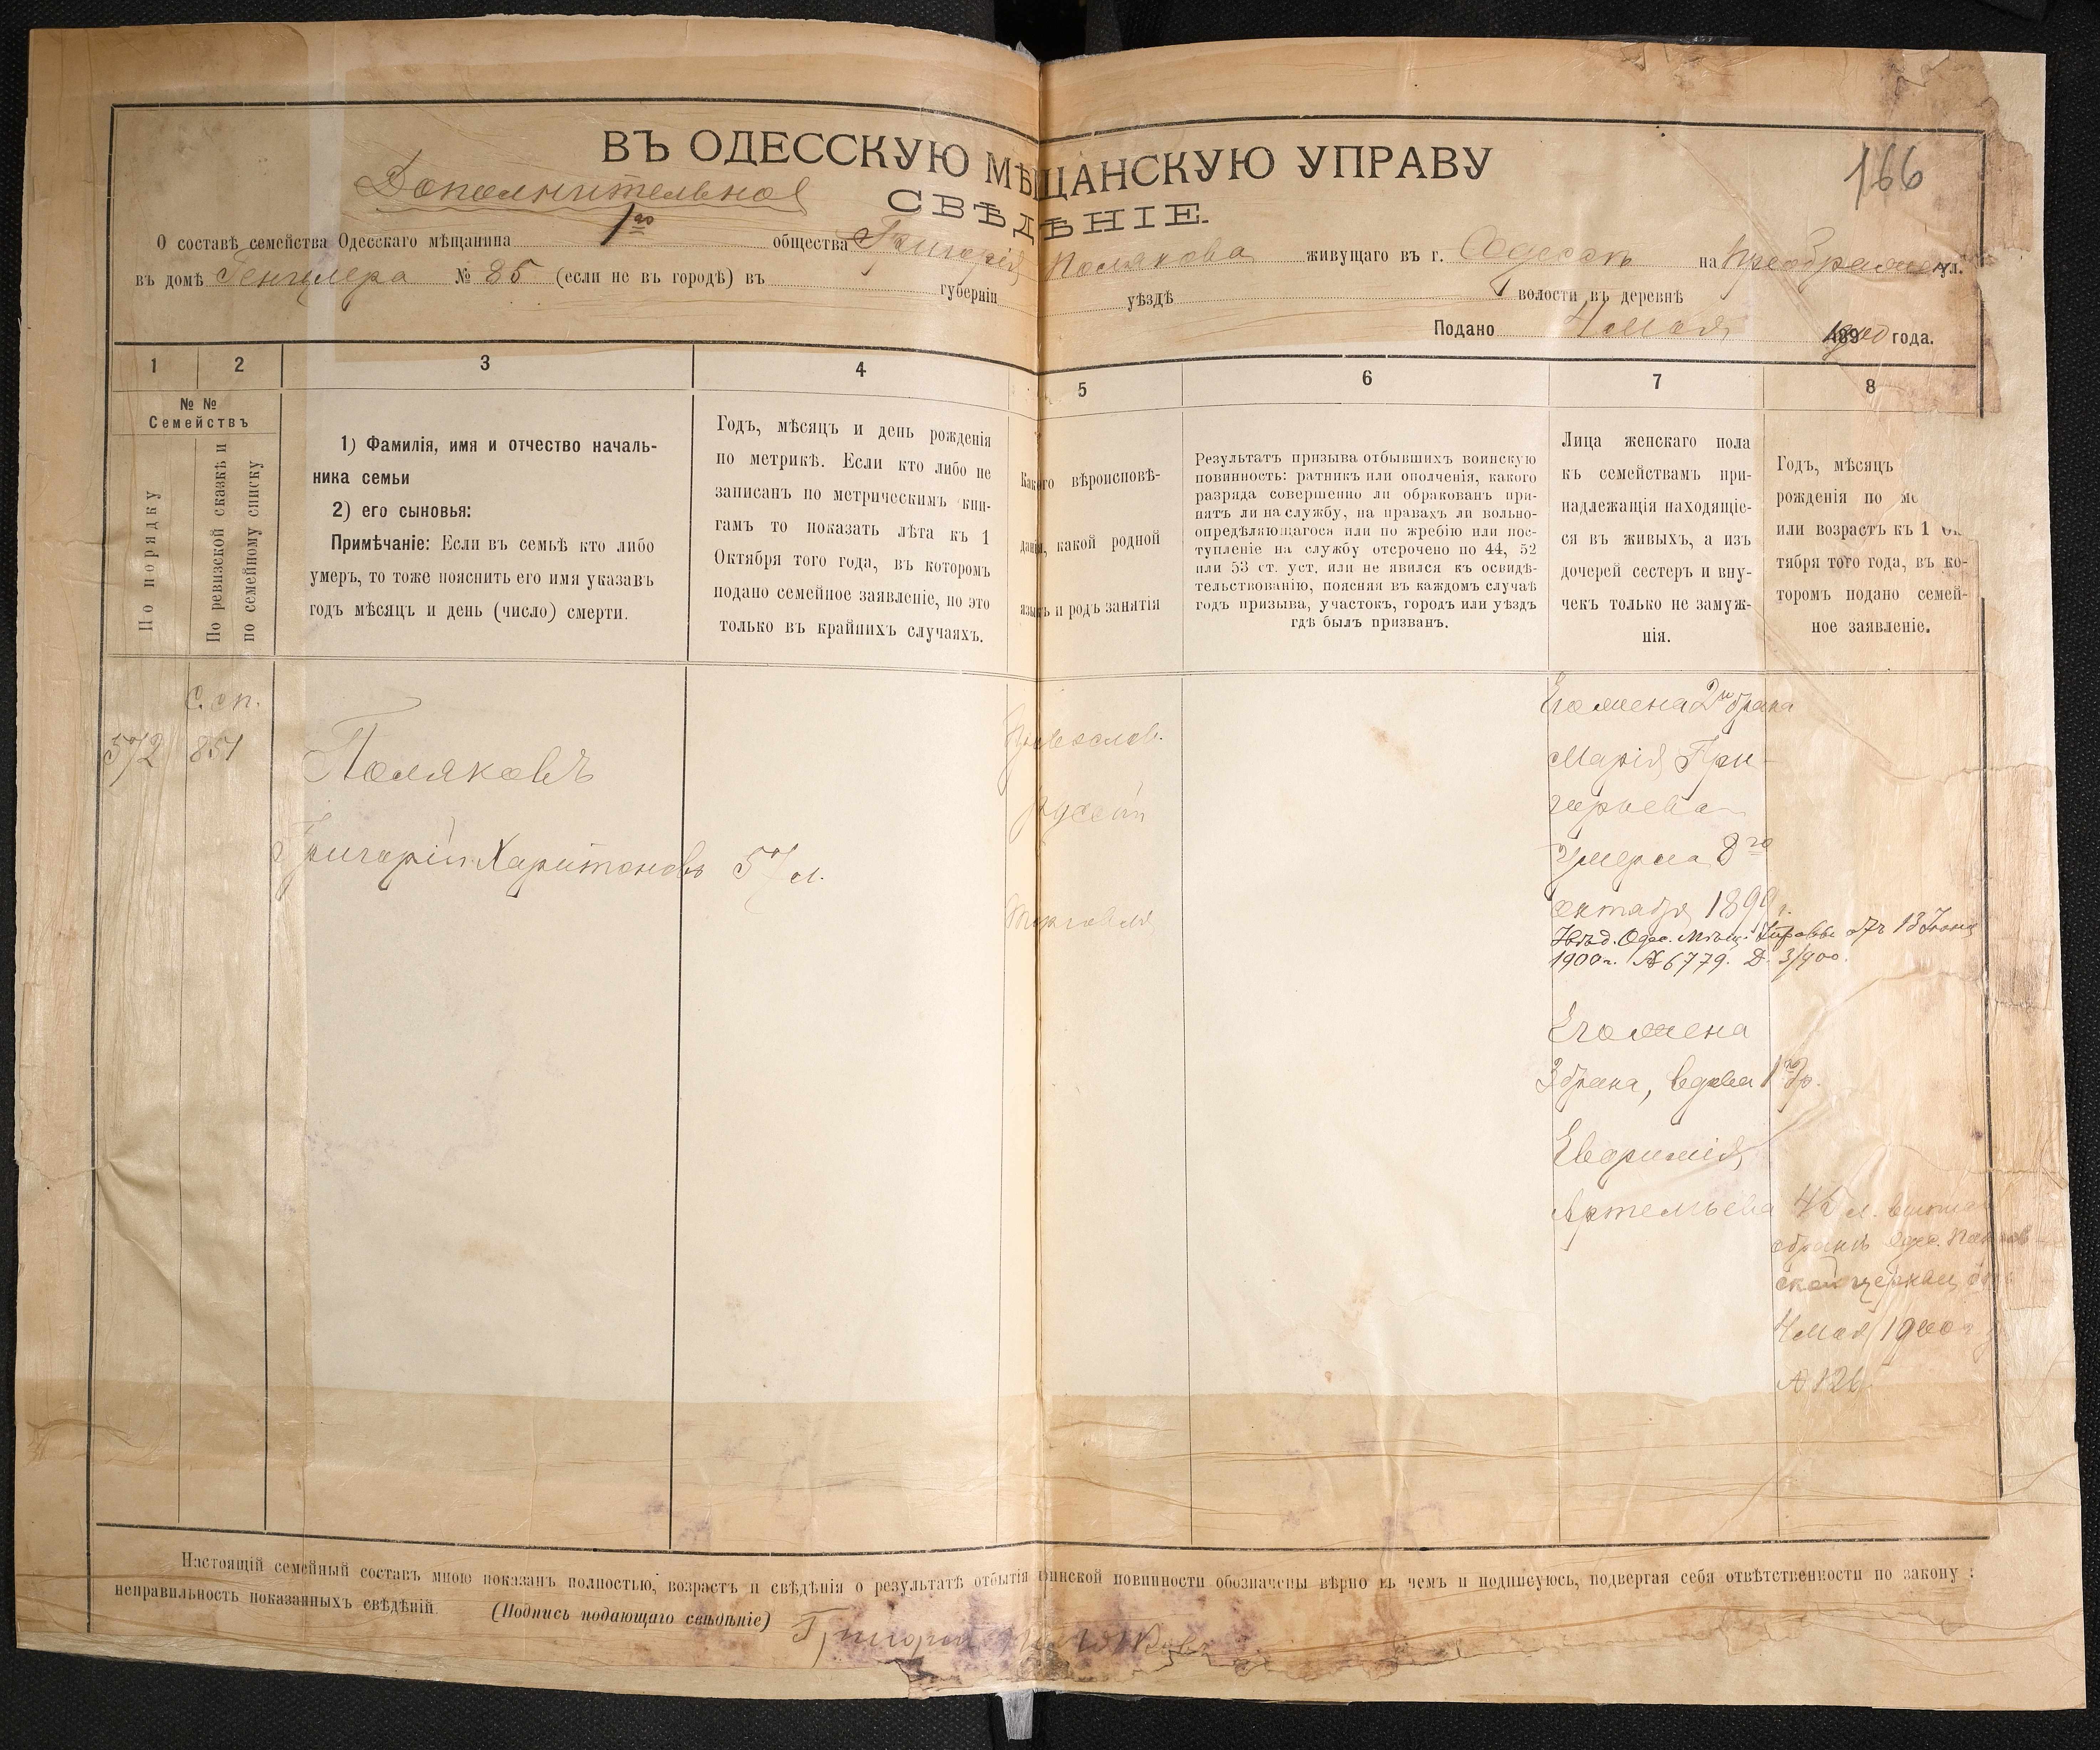 166
ВЪ ОДЕССКУЮ МѢЩАНСКУЮ УПРАВУ
Дополнительное
СВѢДѢНІЕ.
О составѣ семейства Одесскаго мѣщанина 1го общества Григорія Полякова живущаго въ г. Одессѣ на Преображен ул.
въ домѣ № 85 (если не въ городѣ) въ губерніи уѣздѣ волости въ деревнѣ
Подано 4 Мая 1900 года.
1 2 3 4 5 6 7 8
№ №
Семействъ
По порядку
По ревизской сказкѣ и
по семейному списку
1) Фамилія, имя и отчество началь-
ника семьи
2) его сыновья:
Примѣчаніе: Если въ семьѣ кто либо
умеръ, то тоже пояснить его имя указавъ
годъ мѣсяцъ и день (число) смерти.
Годъ, мѣсяцъ и день рожденія
по метрикѣ. Если кто либо не
записанъ по метрическимъ кни-
гамъ то показать лѣта къ 1
Октября того года, въ которомъ
подано семейное заявленіе, но это
только въ крайнихъ случаяхъ.
Какого вѣроисповѣ-
данія, какой родной
языкъ и родъ занятія
Результатъ призыва отбывшихъ воинскую
повинность: ратникъ или ополченія, какого
разряда совершенно ли обракованъ при-
нятъ ли на службу, на правахъ ли вольно-
опредѣляющагося или по жребію или пос-
тупленіе на службу отсрочено по 44, 52
или 53 ст. уст. или не явился къ освидѣ-
тельствованію, поясняя въ каждомъ случаѣ
годъ призыва, участокъ, городъ или уѣздъ
гдѣ былъ призванъ.
Лица женскаго пола
къ семействамъ при-
надлежащія находящіе-
ся въ живыхъ, а изъ
дочерей сестеръ и вну-
чекъ только не замуж-
нія.
Годъ, мѣсяцъ
рожденія по ме
или возрастъ къ 1 Ок
тября того года, въ ко-
торомъ подано семей-
ное заявленіе.
С. сп.
572 851
Поляковъ
Григорій Харитоновъ 57 л.
Православ.
русскій
торговля
Его жена 2го брака
Марія Гри-
горьева
умерла 8го
октября 1899 г.
Увѣд. Одес. Мѣщ. Управы отъ 13 Іюня
1900 г. № 6779. Д. 3/900.
Его жена
3 брака, вдова 1го бр.
Евфимія
Артемьева 45 л.
браки Одес.
ской церкви
4 Мая 1900 г.
№ 126
Настоящій семейный составъ мною показанъ полностью, возрастъ и свѣдѣнія о результатѣ отбытія воинской повинности обозначены вѣрно въ чемъ и подписуюсь, подвергая себя отвѣтственности по закону за
неправильность показанныхъ свѣдѣній. (Подпись подающаго свѣдѣніе) Григорій Поляковъ